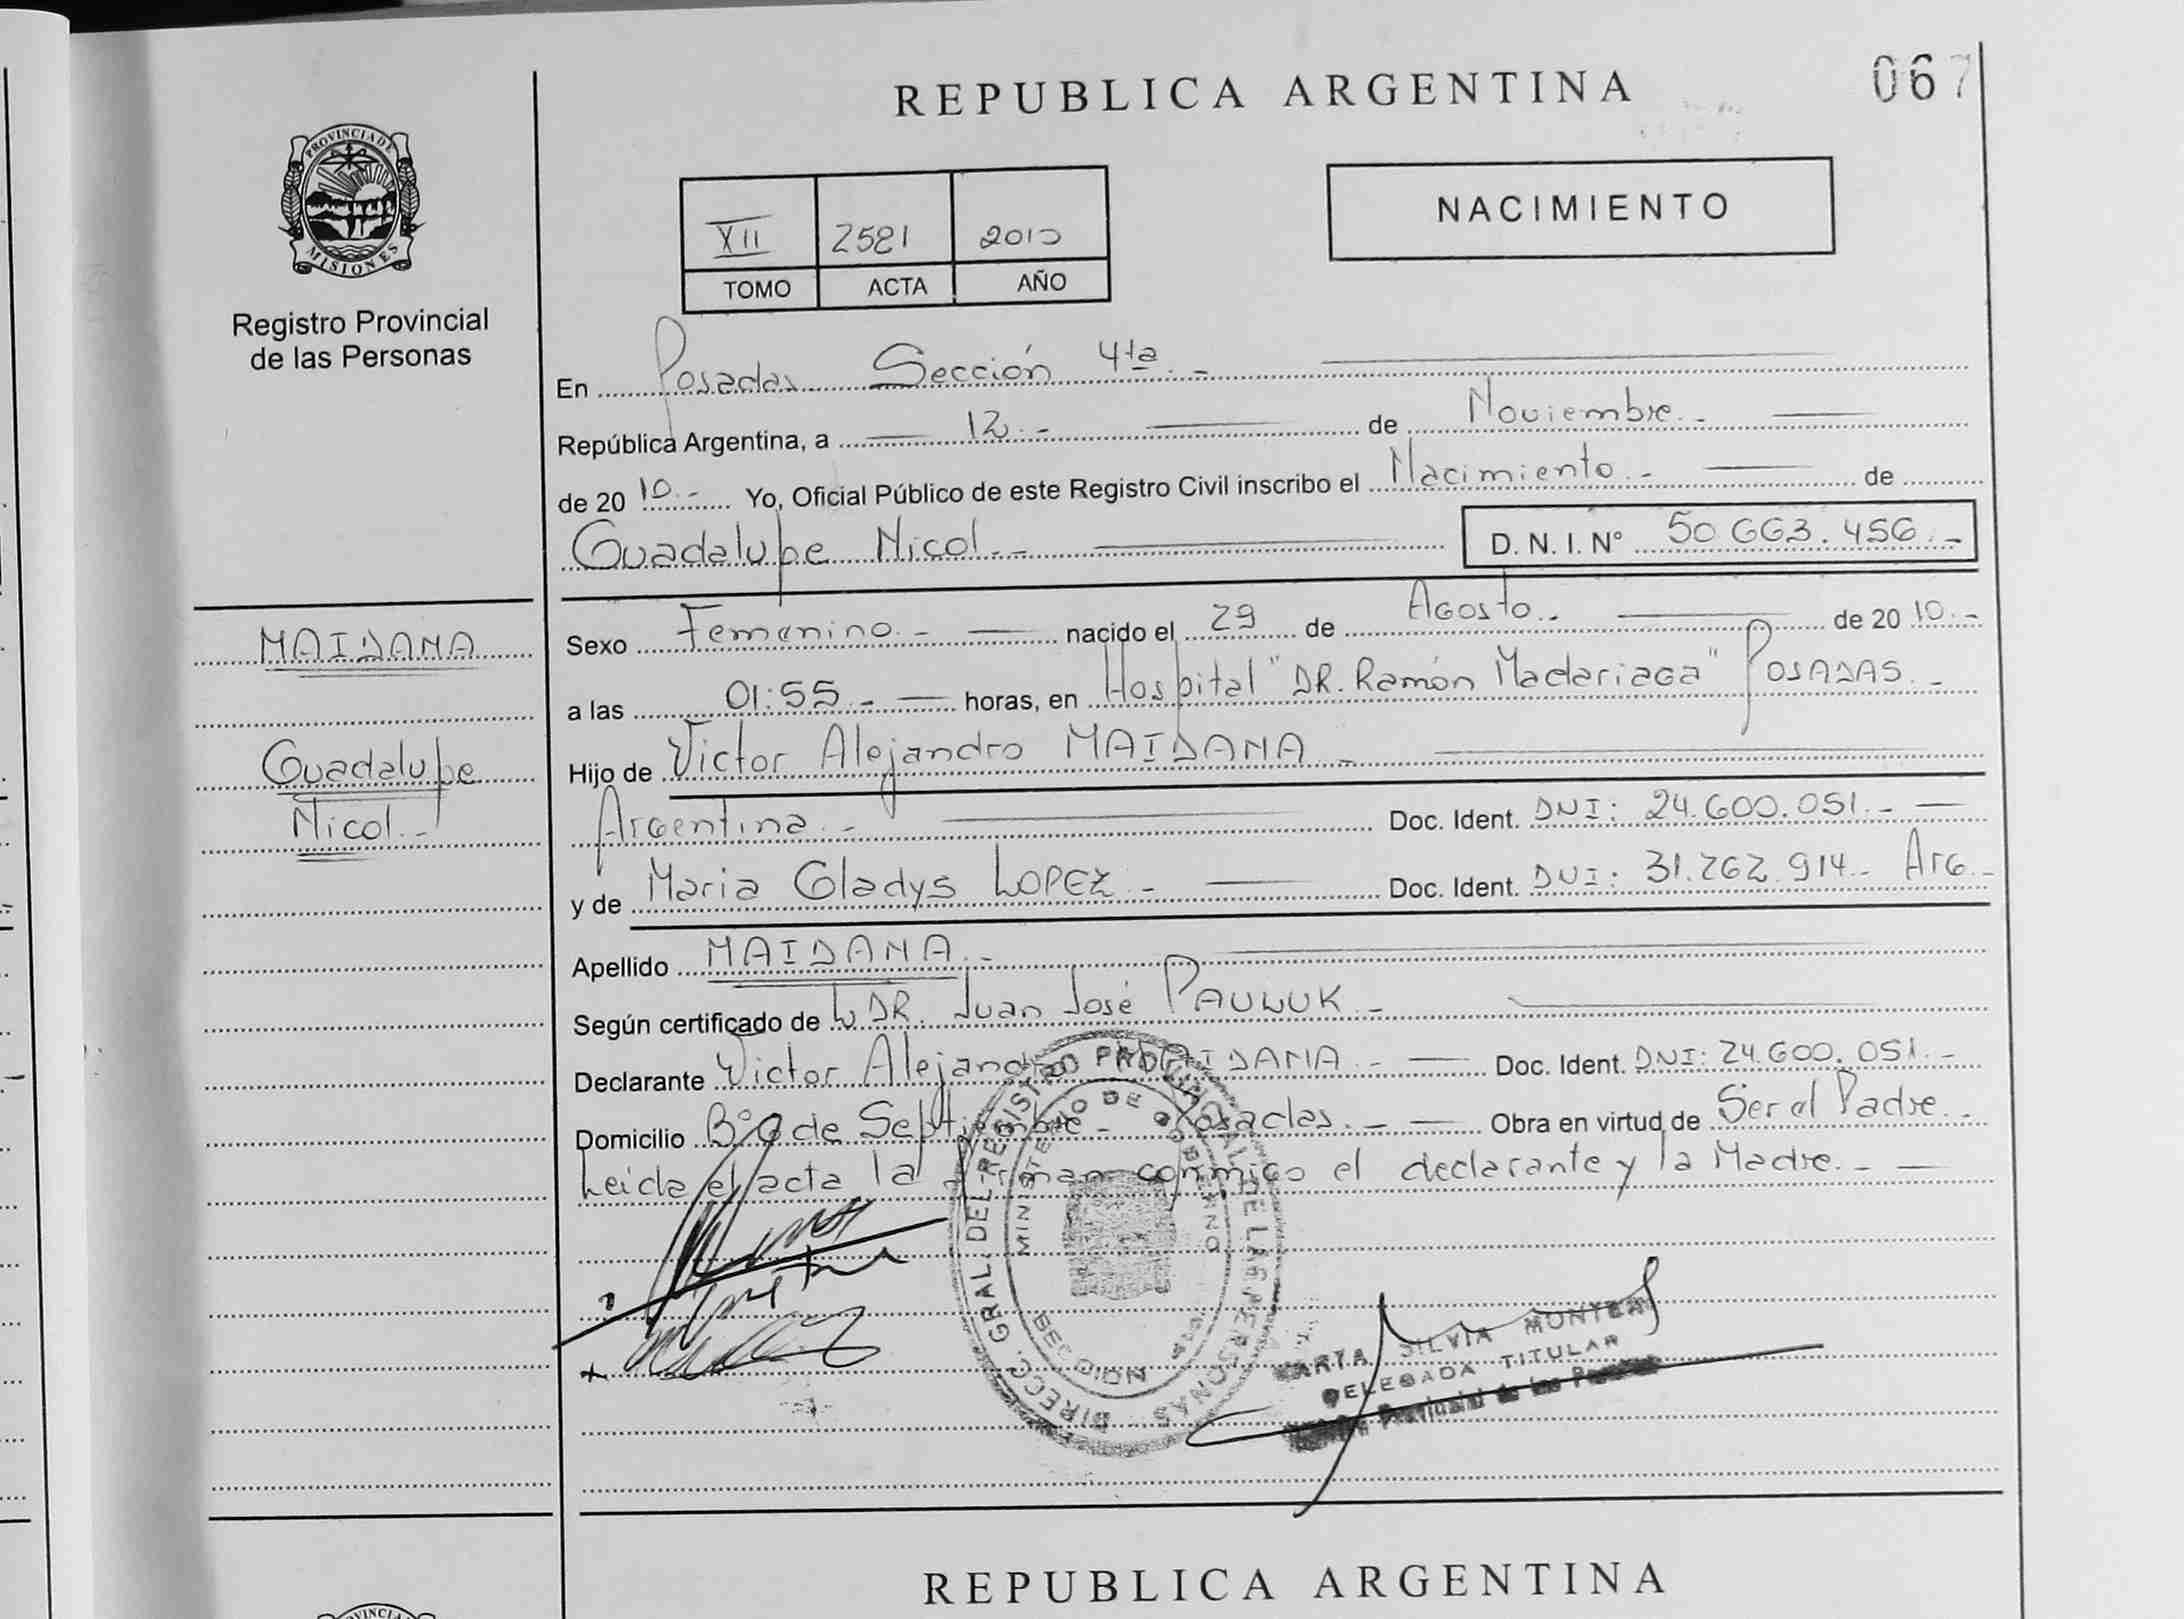 REPUBLICA ARGENTINA
067
PROVINCIA DE
MISIONES
Registro Provincial
de las Personas
XII 2581 2010
TOMO ACTA AÑO
NACIMIENTO
En Posadas Sección 4ta.-
República Argentina, a 12.- de Noviembre.-
de 20 10.- Yo, Oficial Público de este Registro Civil inscribo el Nacimiento.- de
Guadalupe Nicol.- D. N. I. N° 50.663.456.-
MAIDANA
Guadalupe
Nicol.-
Sexo Femenino.- nacido el 29 de Agosto.- de 20 10.-
a las 01:55.- horas, en Hospital "DR. Ramón Madariaga" POSADAS.-
Hijo de Victor Alejandro MAIDANA.-
Argentina.- Doc. Ident. DNI: 24.600.051.-
y de Maria Gladys LOPEZ.- Doc. Ident. DNI: 31.262.914.- ARG.-
Apellido MAIDANA.-
Según certificado de DR. Juan José PAULUK.-
Declarante Victor Alejandro MAIDANA.- Doc. Ident. DNI: 24.600.051.-
Domicilio de Septiembre- Posadas.- Obra en virtud de Ser el Padre.-
Leida el acta la firman conmigo el declarante y la Madre.-
DIRECC. GRAL. DEL REGISTRO PROVINCIAL DE LAS PERSONAS
MINISTERIO DE GOBIERNO
MARTA SILVIA
DELEGADA TITULAR
Provincial de las Personas
REPUBLICA ARGENTINA